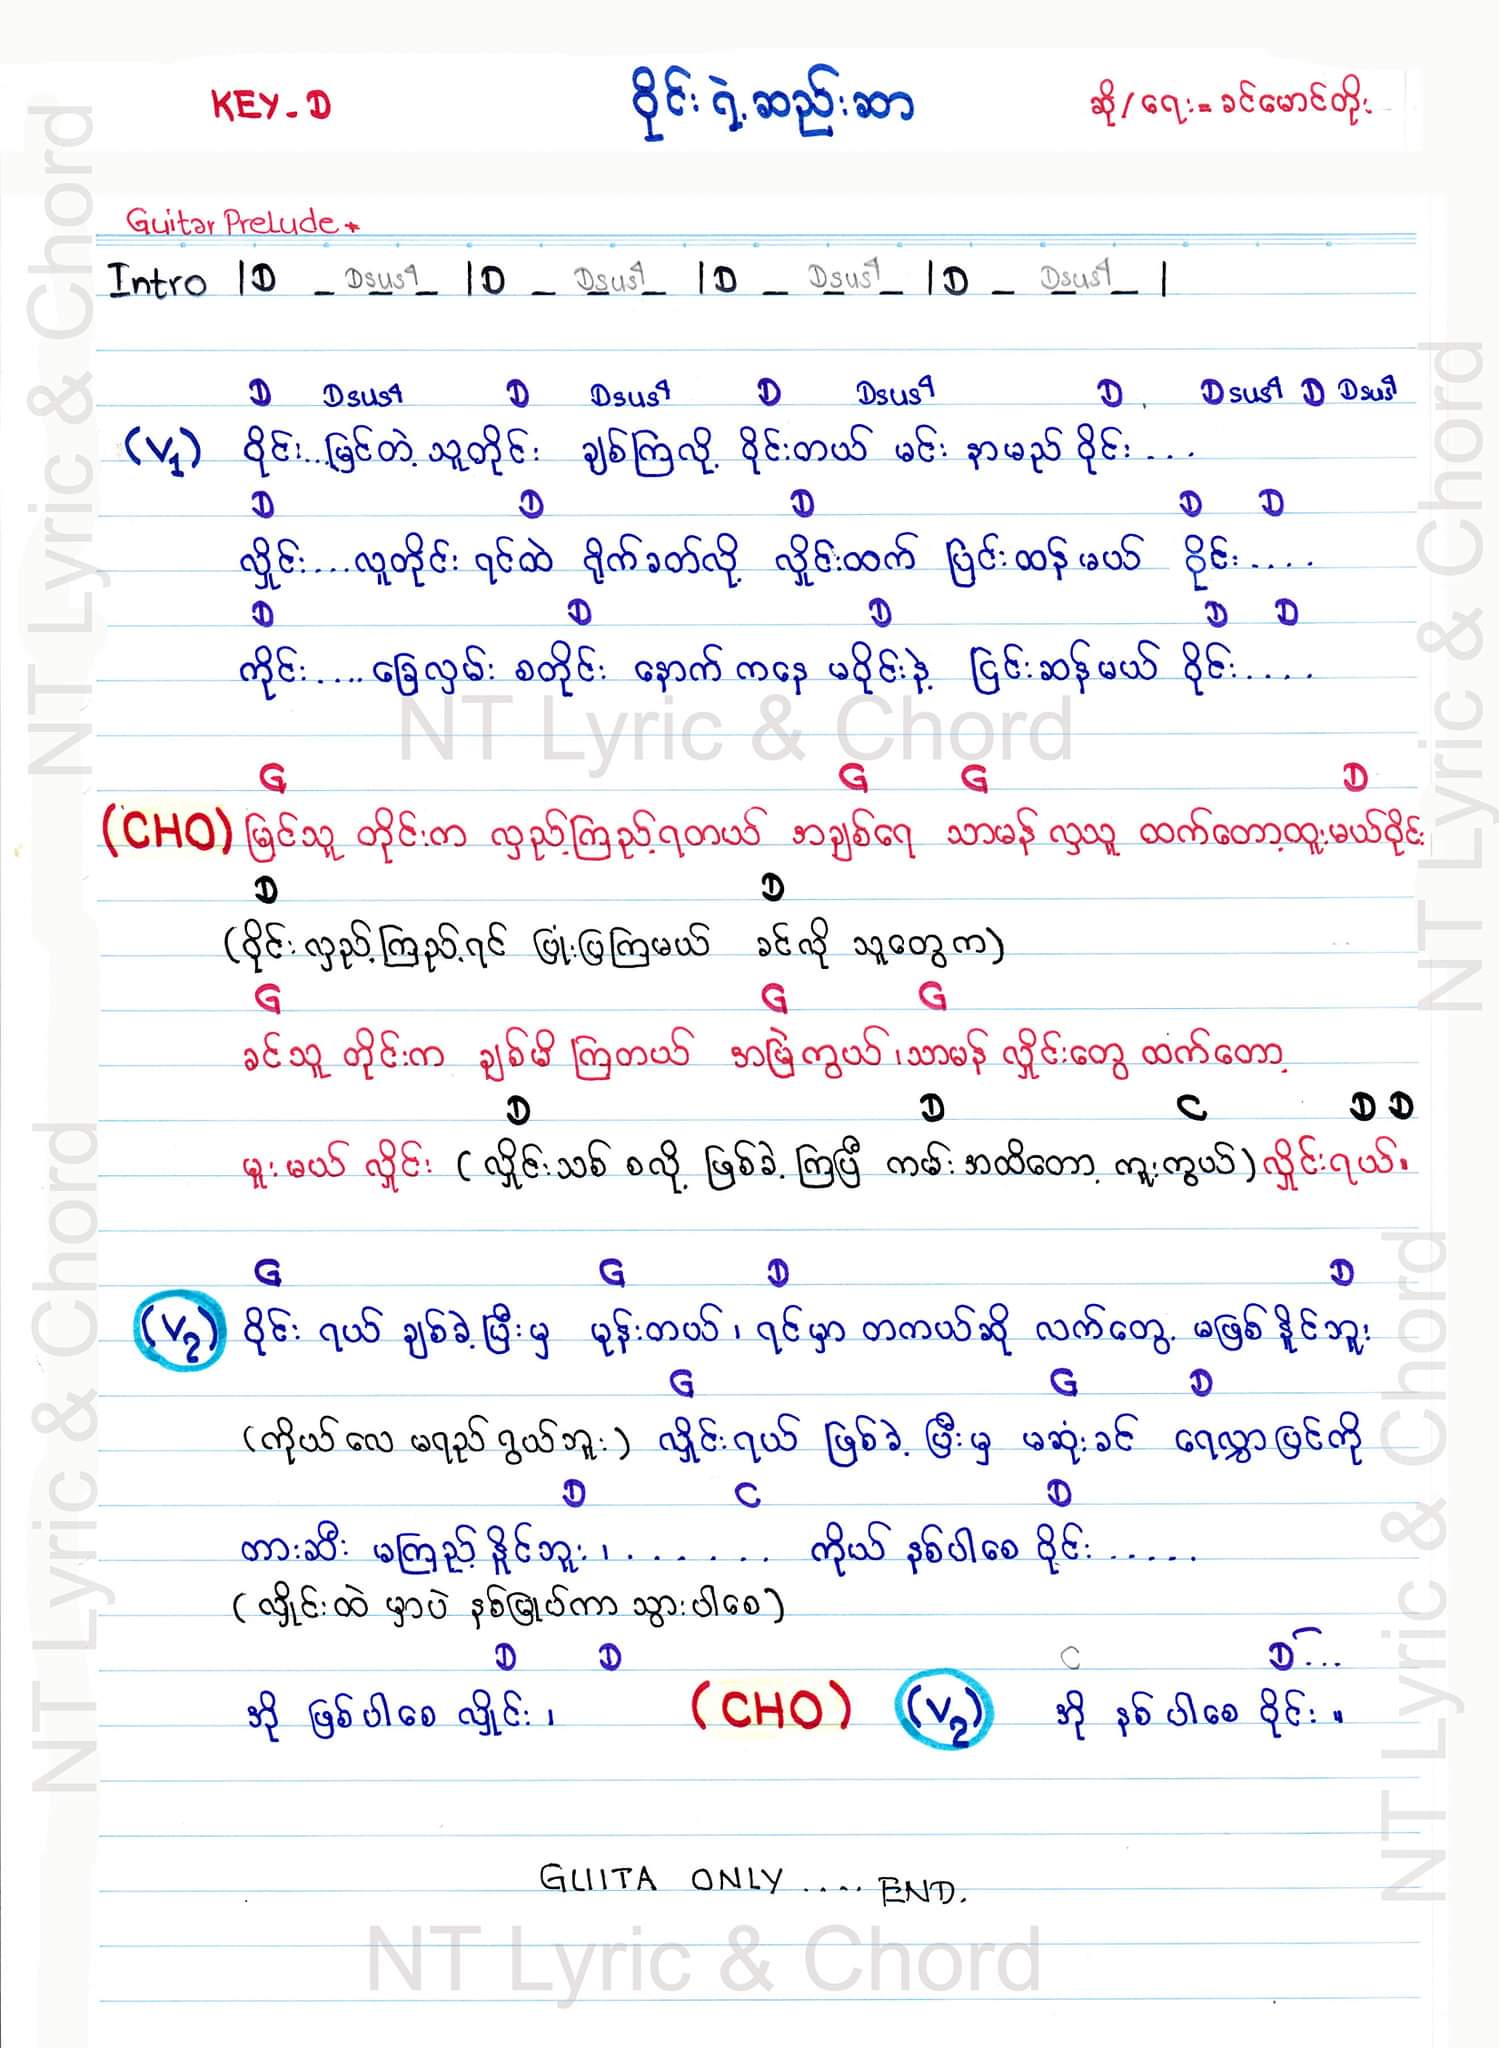 KEY-D ဝိုင်းရဲ့ဆည်းဆာ ဆို/ရေး=ခင်မောင်တိုး
Guitar Prelude
Intro |D _ Dsus4 _ |D _ Dsus4 _ |D _ Dsus4 _ |D _ Dsus4 _ |
D Dsus4 D Dsus4 D Dsus4 D Dsus4 D Dsus4
(V1) ဝိုင်း...မြင်တဲ့ သူတိုင်း ချစ်ကြလို့ ဝိုင်းတယ် မင်း နာမည် ဝိုင်း...
D D D D D
လှိုင်း...လူတိုင်း ရင်ထဲ ရိုက်ခတ်လို့ လှိုင်းထက် ပြင်းထန်မယ် ဝိုင်း....
D D D D D
ကိုင်း....ခြေလှမ်း စတိုင်း နောက်ကနေ မဝိုင်းနဲ့ ငြင်းဆန်မယ် ဝိုင်း....
G G G D
(CHO) မြင်သူ တိုင်းက လှည့်ကြည့်ရတယ် အချစ်ရေ သာမန် လှသူ ထက်တော့ထူးမယ်ဝိုင်း
D D
(ဝိုင်း လှည့်ကြည့်ရင် ပြုံးပြကြမယ် ခင်လို သူတွေက)
G G G
ခင်သူ တိုင်းက ချစ်မိ ကြတယ် အမြဲကွယ်၊သာမန် လှိုင်းတွေ ထက်တော့
D D C D D
မူးမယ် လှိုင်း (လှိုင်းသစ် စလို့ ဖြစ်ခဲ့ကြပြီ ကမ်းအထိတော့ ကူးကွယ်) လှိုင်းရယ်။
G G D D
(V2) ဝိုင်း ရယ် ချစ်ခဲ့ပြီးမှ မုန်းတယ်၊ ရင်မှာ တကယ်ဆို လက်တွေ့ မဖြစ်နိုင်ဘူး
G G D
(ကိုယ်လေ မရည်ရွယ်ဘူး) လှိုင်းရယ် ဖြစ်ခဲ့ ပြီးမှ မဆုံးခင် ရေလွှာပြင်ကို
D C D
တားဆီး မကြည့်နိုင်ဘူး၊....... ကိုယ် နစ်ပါစေ ဝိုင်း.....
(လှိုင်းထဲ မှာပဲ နစ်မြုပ်ကာ သွားပါစေ)
D D C D...
အို ဖြစ်ပါစေ လှိုင်း၊ (CHO) (V2) အို နစ်ပါစေ ဝိုင်း။
GUITA ONLY .... END.
NT Lyric & Chord
NT Lyric & Chord
NT Lyric & Chord
NT Lyric & Chord
NT Lyric & Chord
NT Lyric & Chord